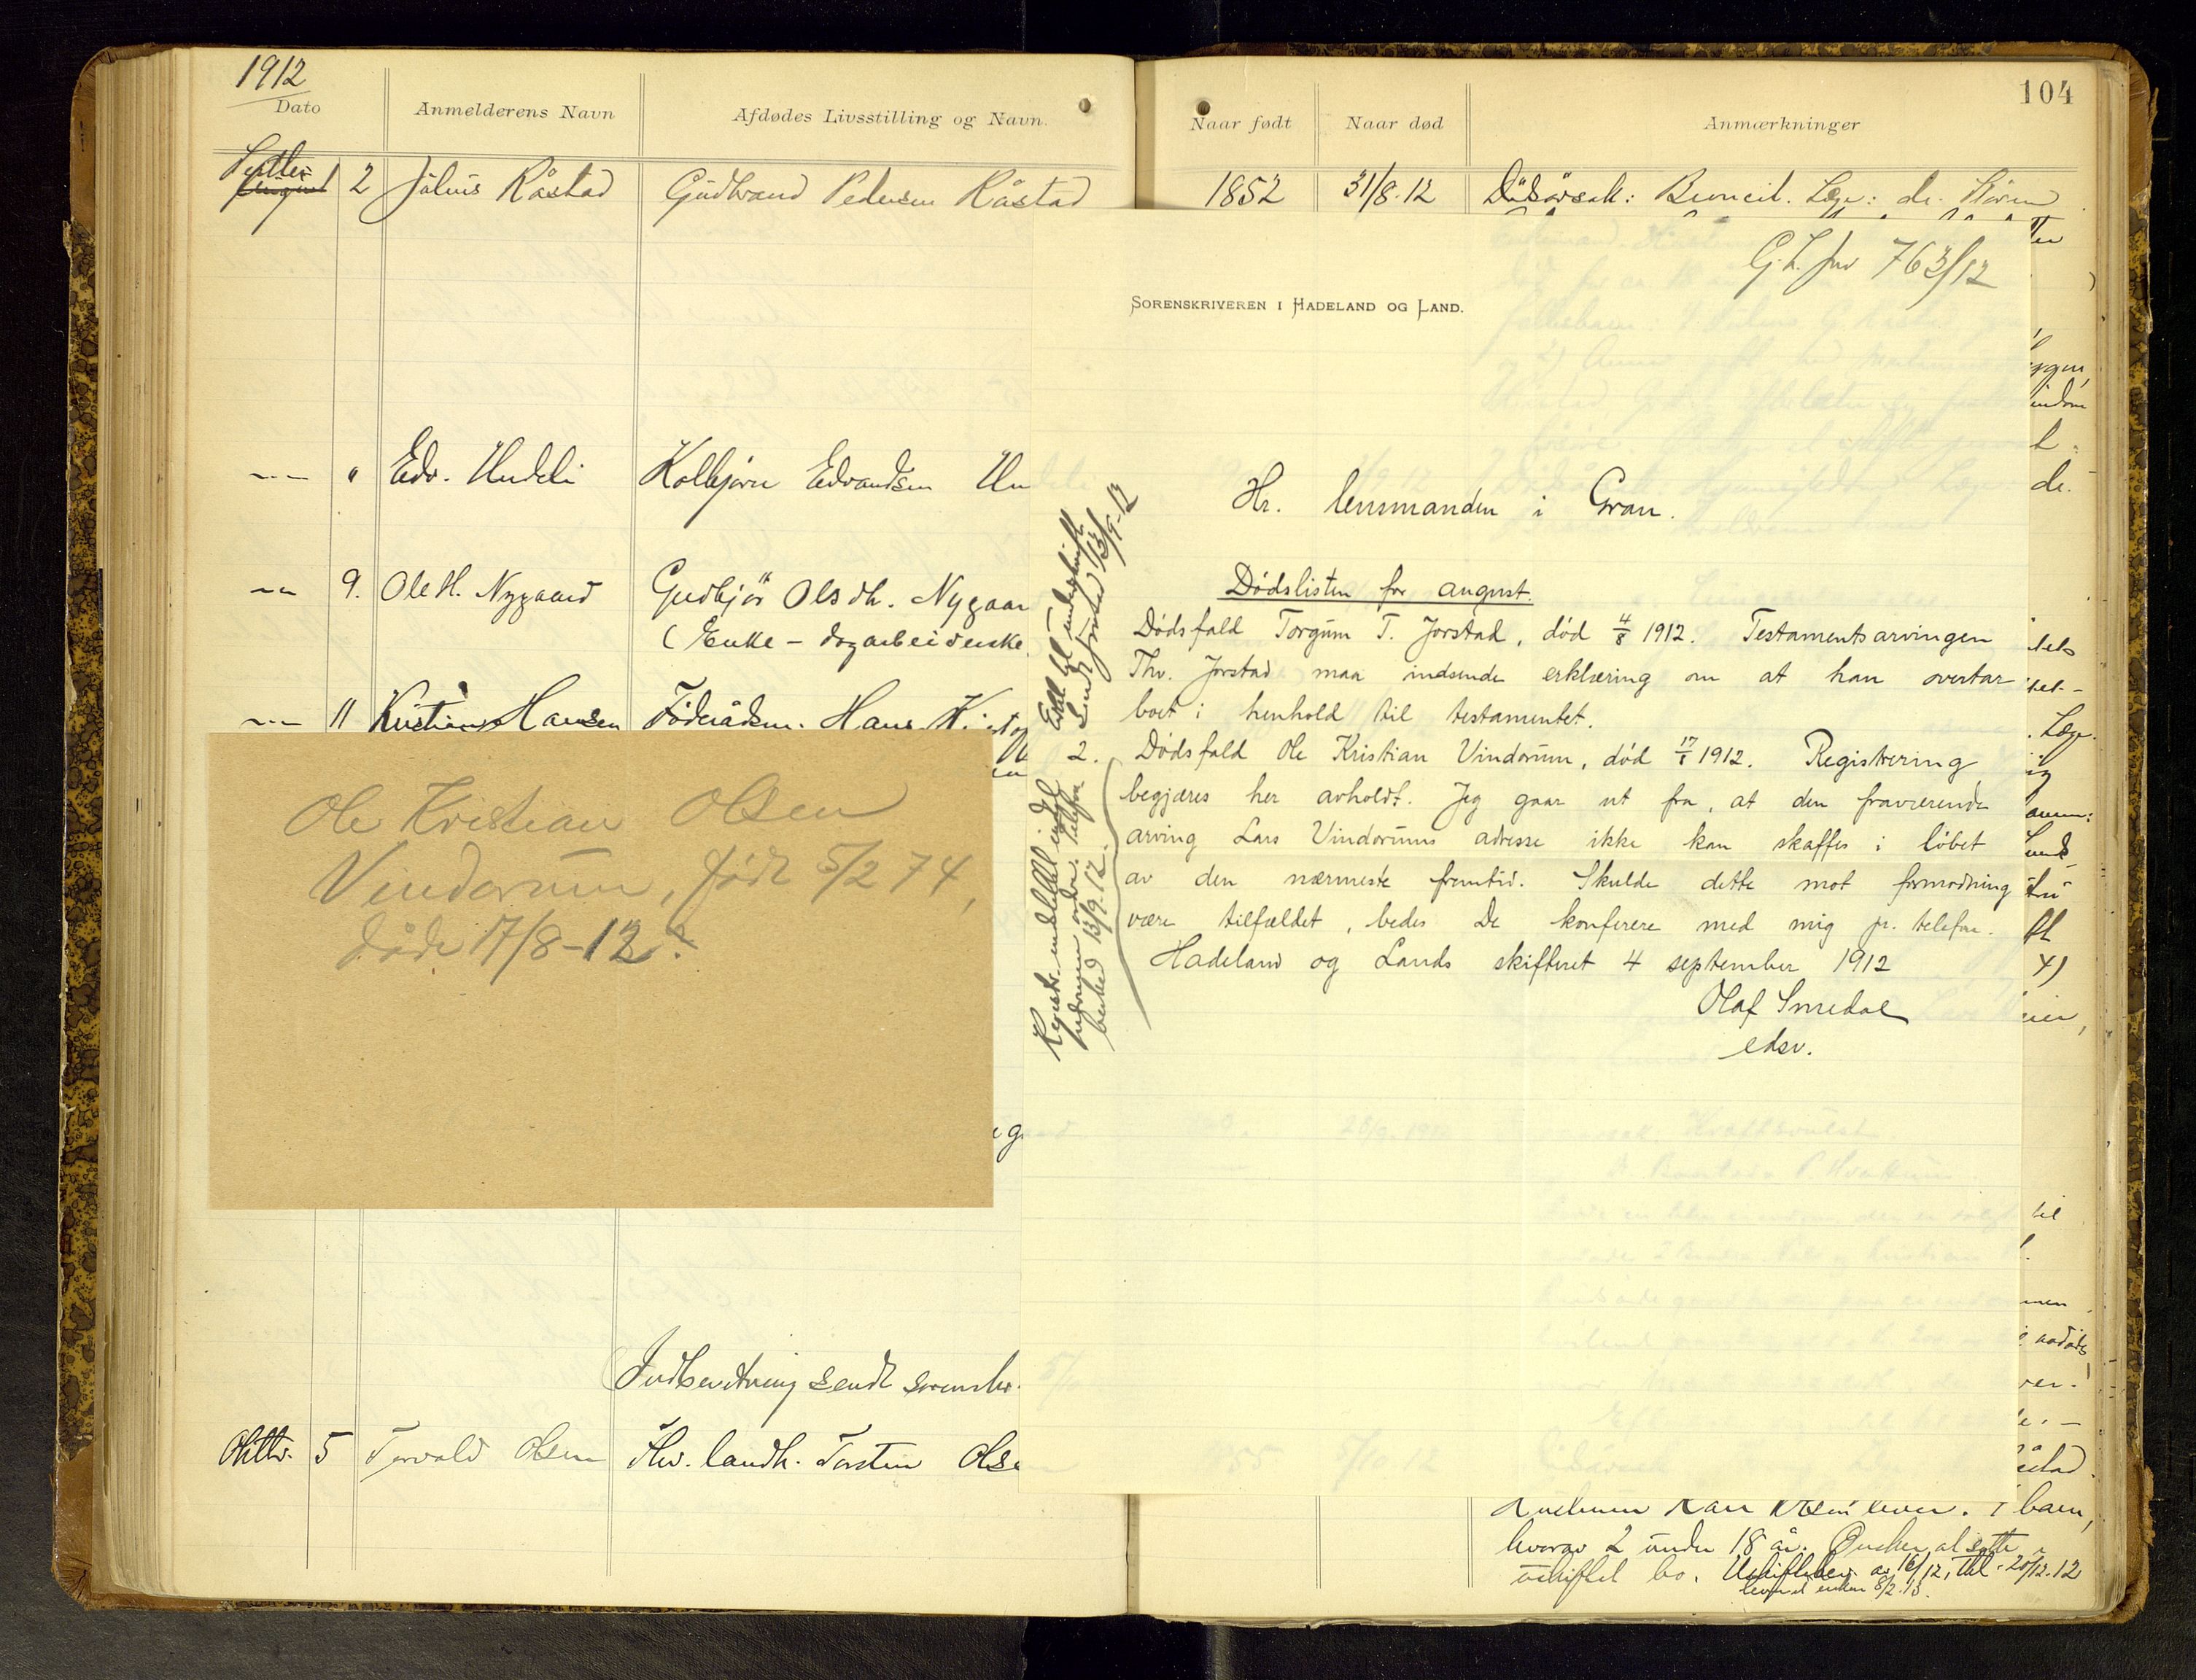 1912
104
Dato
Anmelderens Navn
Afdødes Livsstilling og Navn.
Naar født
Naar død
Anmærkninger
Septbr. 2 Julius Råstad Gudbrand Pedersen Råstad 1852 31/8.12 Dødsårsak: Læge: dr.
"
Edv. Undeli Kolbjørn Edvardsen Un
9. Ole H. Nygaard Gudbjør Olsdt. Nygaar
(Enke – dagarbeiderske
11 Kristian Hansen Føderådsm. Hans
Ole Kristian Olsen
Vindorum, født 5/2 74,
døde 17/8-12.
Indberetning sendt sorenskr.
Oktbr. 5 Torvald Olsen Torstein Olse
G. L. jnr 763/12
SORENSKRIVEREN I HADELAND OG LAND.
Hr. lensmanden i Gran.
Dødslisten for august.
Dødsfald Torgum T. Jorstad, død 4/8 1912. Testamentsarvingen
Thv. Jorstad maa indsende erklæring om at han overtar
boet i henhold til testamentet.
2. Dødsfald Ole Kristian Vindorum, død 17/8 1912. Registrering
begjæres her avholdt. Jeg gaar ut fra, at den fraværende
arving Lars Vindorums adresse ikke kan skaffes i løbet
av den nærmeste fremtid. Skulde dette mot formodning
være tilfældet, bedes De konferere med mig pr. telefon.
Hadeland og Lands skifteret 4 september 1912
Olaf Smedal
edsv.
Erkl. til underskrift
sendt Jorstad 13/9-12
telefon
besked 13/9.12.
lever. 7 barn,
hvorav 2 under 18 år. Ønsker at sitte
uskiftet bo. Uskiftebev. av 16/12, 20/12.12
levert enken 8/2.13.